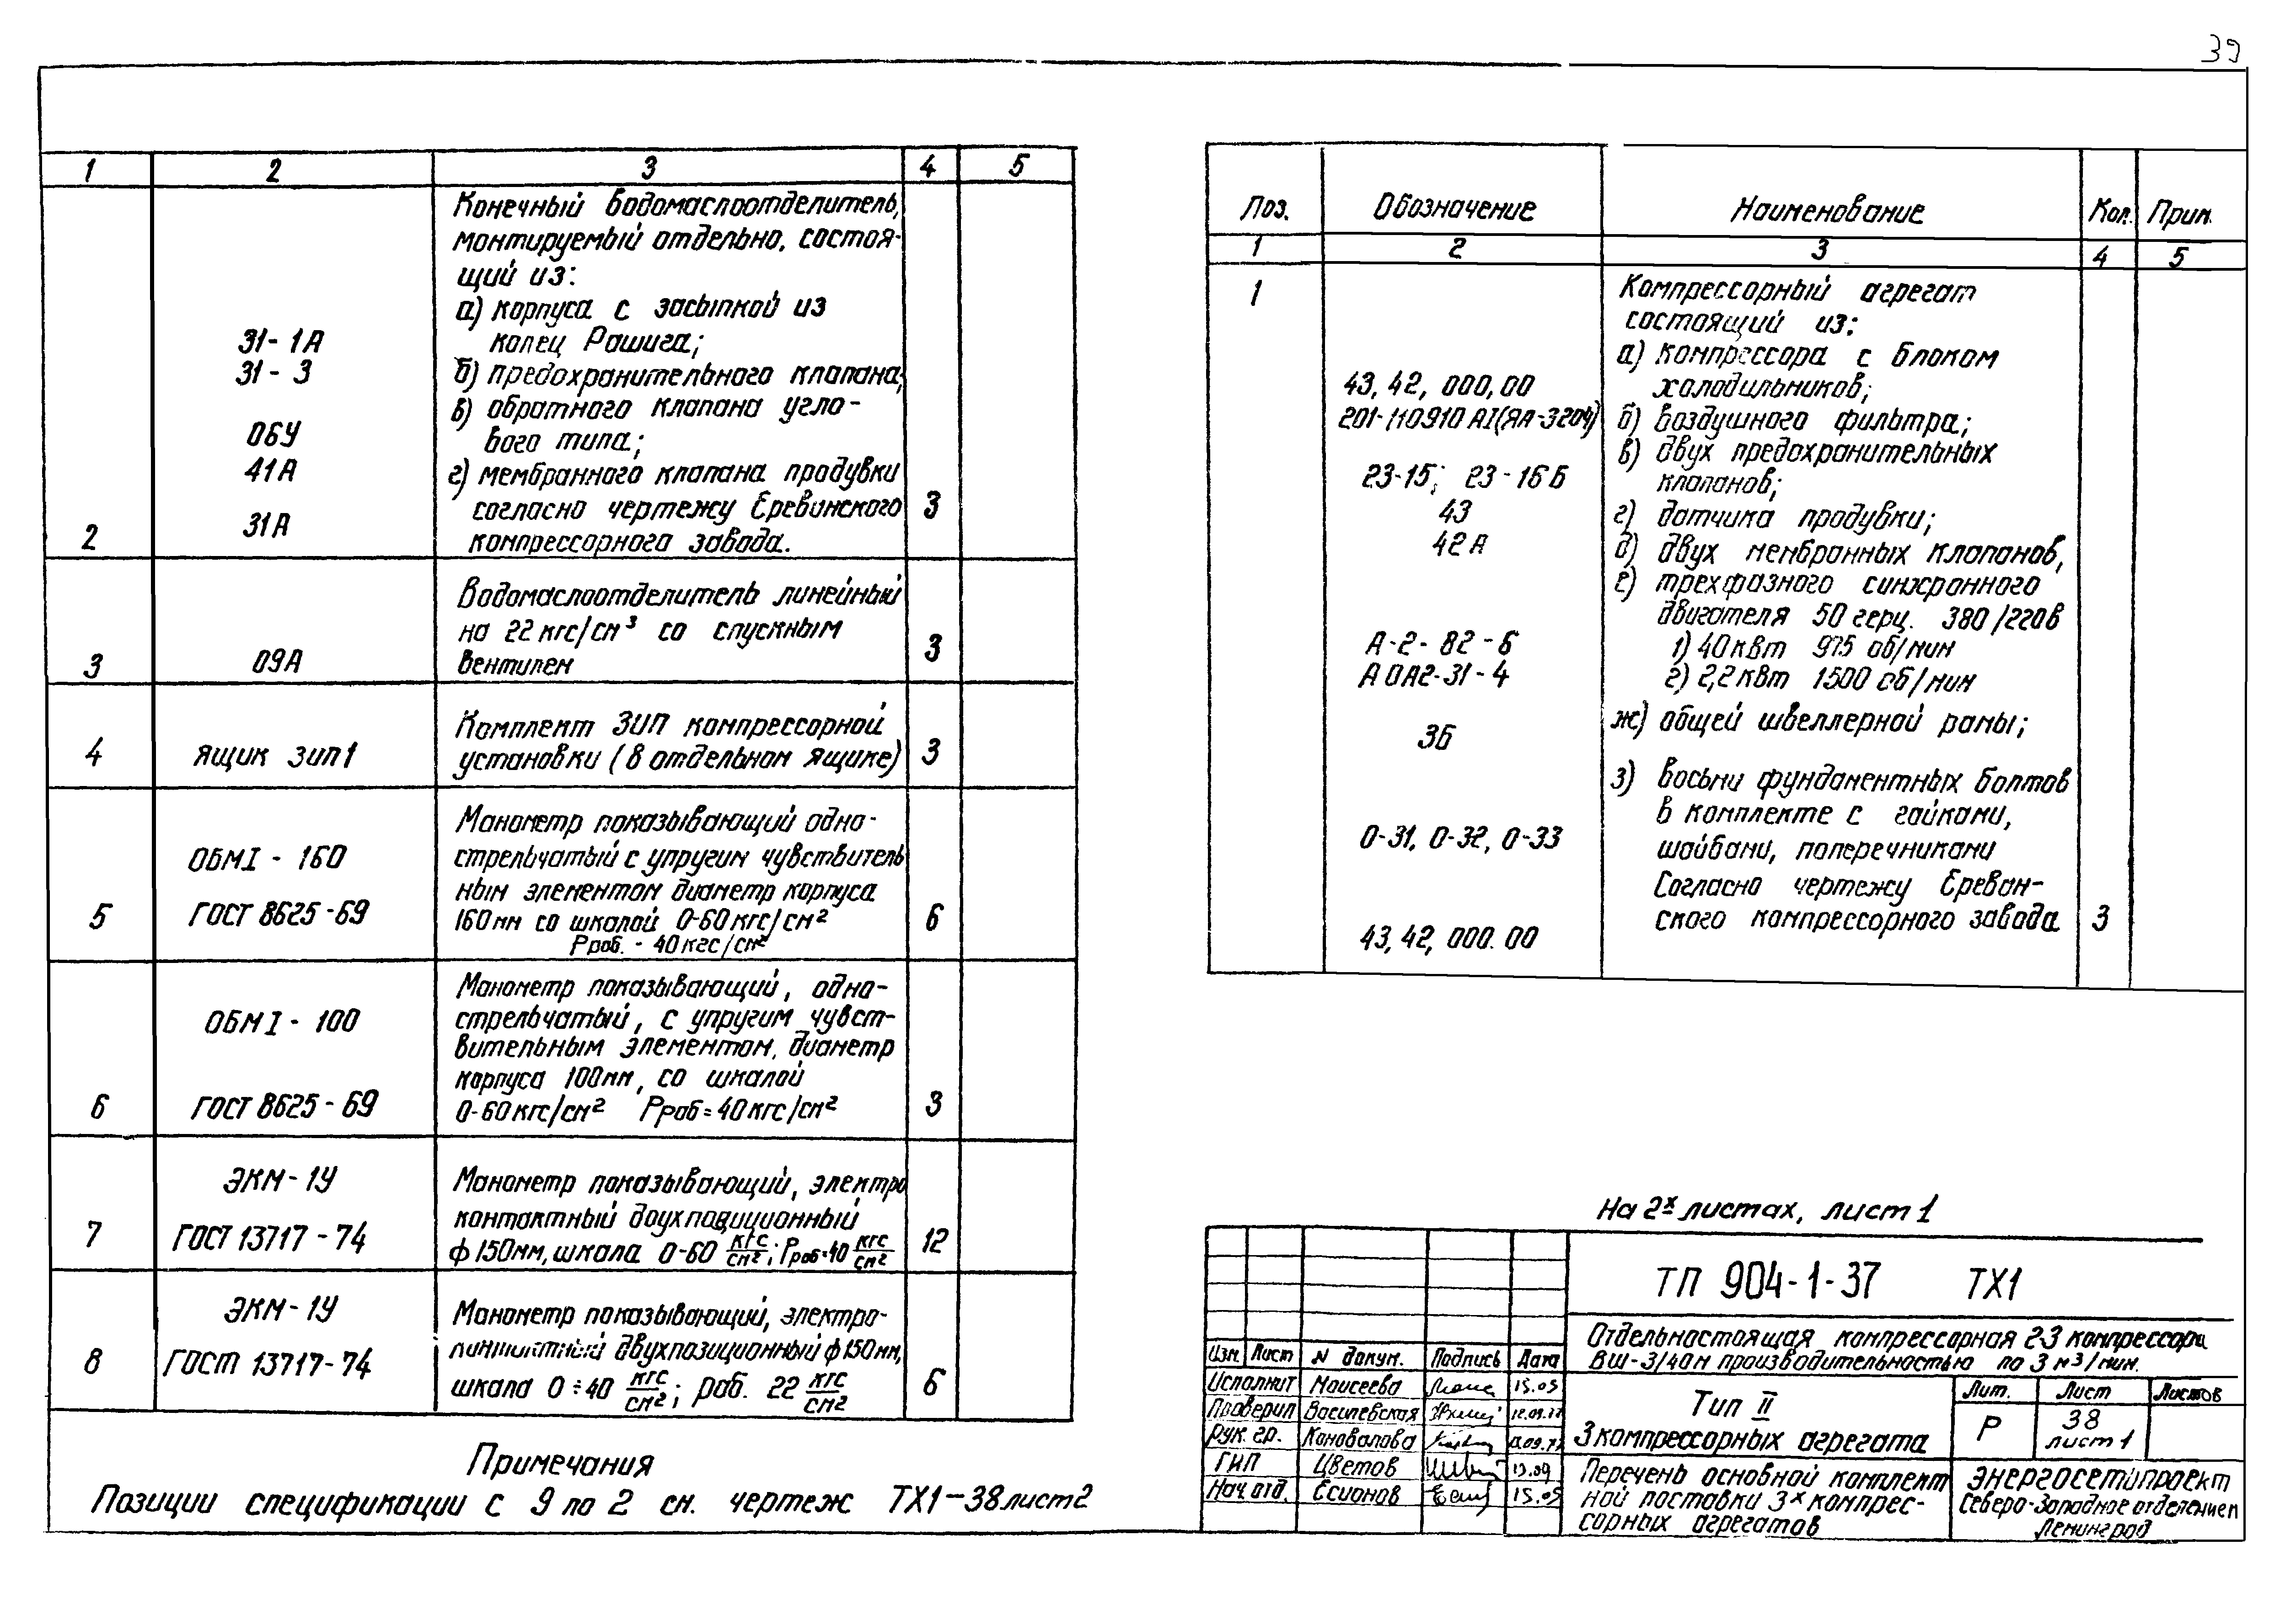 39
1 2 3 4 5
Конечный водомаслоотделитель,
монтируемый отдельно, состоя-
щий из:
а) корпуса с засыпкой из
31-1А колец Рашига;
31-3 б) предохранительного клапана;
в) обратного клапана угло-
ОБУ вого типа;
41А г) мембранного клапана продувки
согласно чертежу Ереванского 3
2 31А компрессорного завода.
Водомаслоотделитель линейный
на 22 кгс/см³ со спускным 3
3 09А вентилем
Комплект ЗИП компрессорной
4 ящик зип1 установки (в отдельном ящике) 3
Манометр показывающий одно-
ОБМI - 160 стрельчатый с упругим чувствитель
ным элементом диаметр корпуса
5 ГОСТ 8625-69 160мм со шкалой 0-60кгс/см² 6
Рраб. - 40кгс/см²
Манометр показывающий, одно-
ОБМI - 100 стрельчатый, с упругим чувст-
вительным элементом, диаметр
корпуса 100мм, со шкалой
6 ГОСТ 8625-69 0-60кгс/см² Рраб=40кгс/см² 3
ЭКМ-1У Манометр показывающий, электро
контактный двухпозиционный
7 ГОСТ 13717-74 ф150мм, шкала 0-60 кгс/см²; Рраб=40 кгс/см² 12
ЭКМ-1У Манометр показывающий, электро-
двухпозиционный ф150мм,
8 ГОСТ 13717-74 шкала 0÷40 кгс/см²; раб. 22 кгс/см² 6
Примечания
Позиции спецификации с 9 по 2 см. чертеж ТХ1-38лист2
Поз. Обозначение Наименование Кол. Прим.
1 2 3 4 5
1 Компрессорный агрегат
состоящий из:
а) компрессора с блоком
43, 42, 000,00 холодильников;
201-110910 АI(ЯА-3204) б) воздушного фильтра;
в) двух предохранительных
23-15; 23-16Б клапанов;
43 г) датчика продувки;
42А д) двух мембранных клапанов,
е) трехфазного синхронного
двигателя 50 герц. 380/220в
А-2-82-6 1) 40квт 975 об/мин
АОА2-31-4 2) 2,2квт 1500 об/мин
3Б ж) общей швеллерной рамы;
з) восьми фундаментных болтов
в комплекте с гайками,
0-31, 0-32, 0-33 шайбами, поперечниками
Согласно чертежу Ереван-
ского компрессорного завода 3
43, 42, 000.00
На 2х листах, лист 1
ТП 904-1-37 ТХ1
Отдельностоящая компрессорная 2-3 компрессора
ВШ-3/40м производительностью по 3 м³/мин.
Изм Лист N докум. Подпись Дата
Исполнит Моисеева 15.09
Проверил Василевская 12.09.77
Рук. гр. Коновалова
ГИП Цветов 13.09
Нач. отд. Есионов 15.09
Тип II
3 компрессорных агрегата
Лит. Лист Листов
Р 38
лист 1
Перечень основной комплект
ной поставки 3х компрес-
сорных агрегатов
ЭНЕРГОСЕТЬПРОЕКТ
Северо-Западное отделение
Ленинград